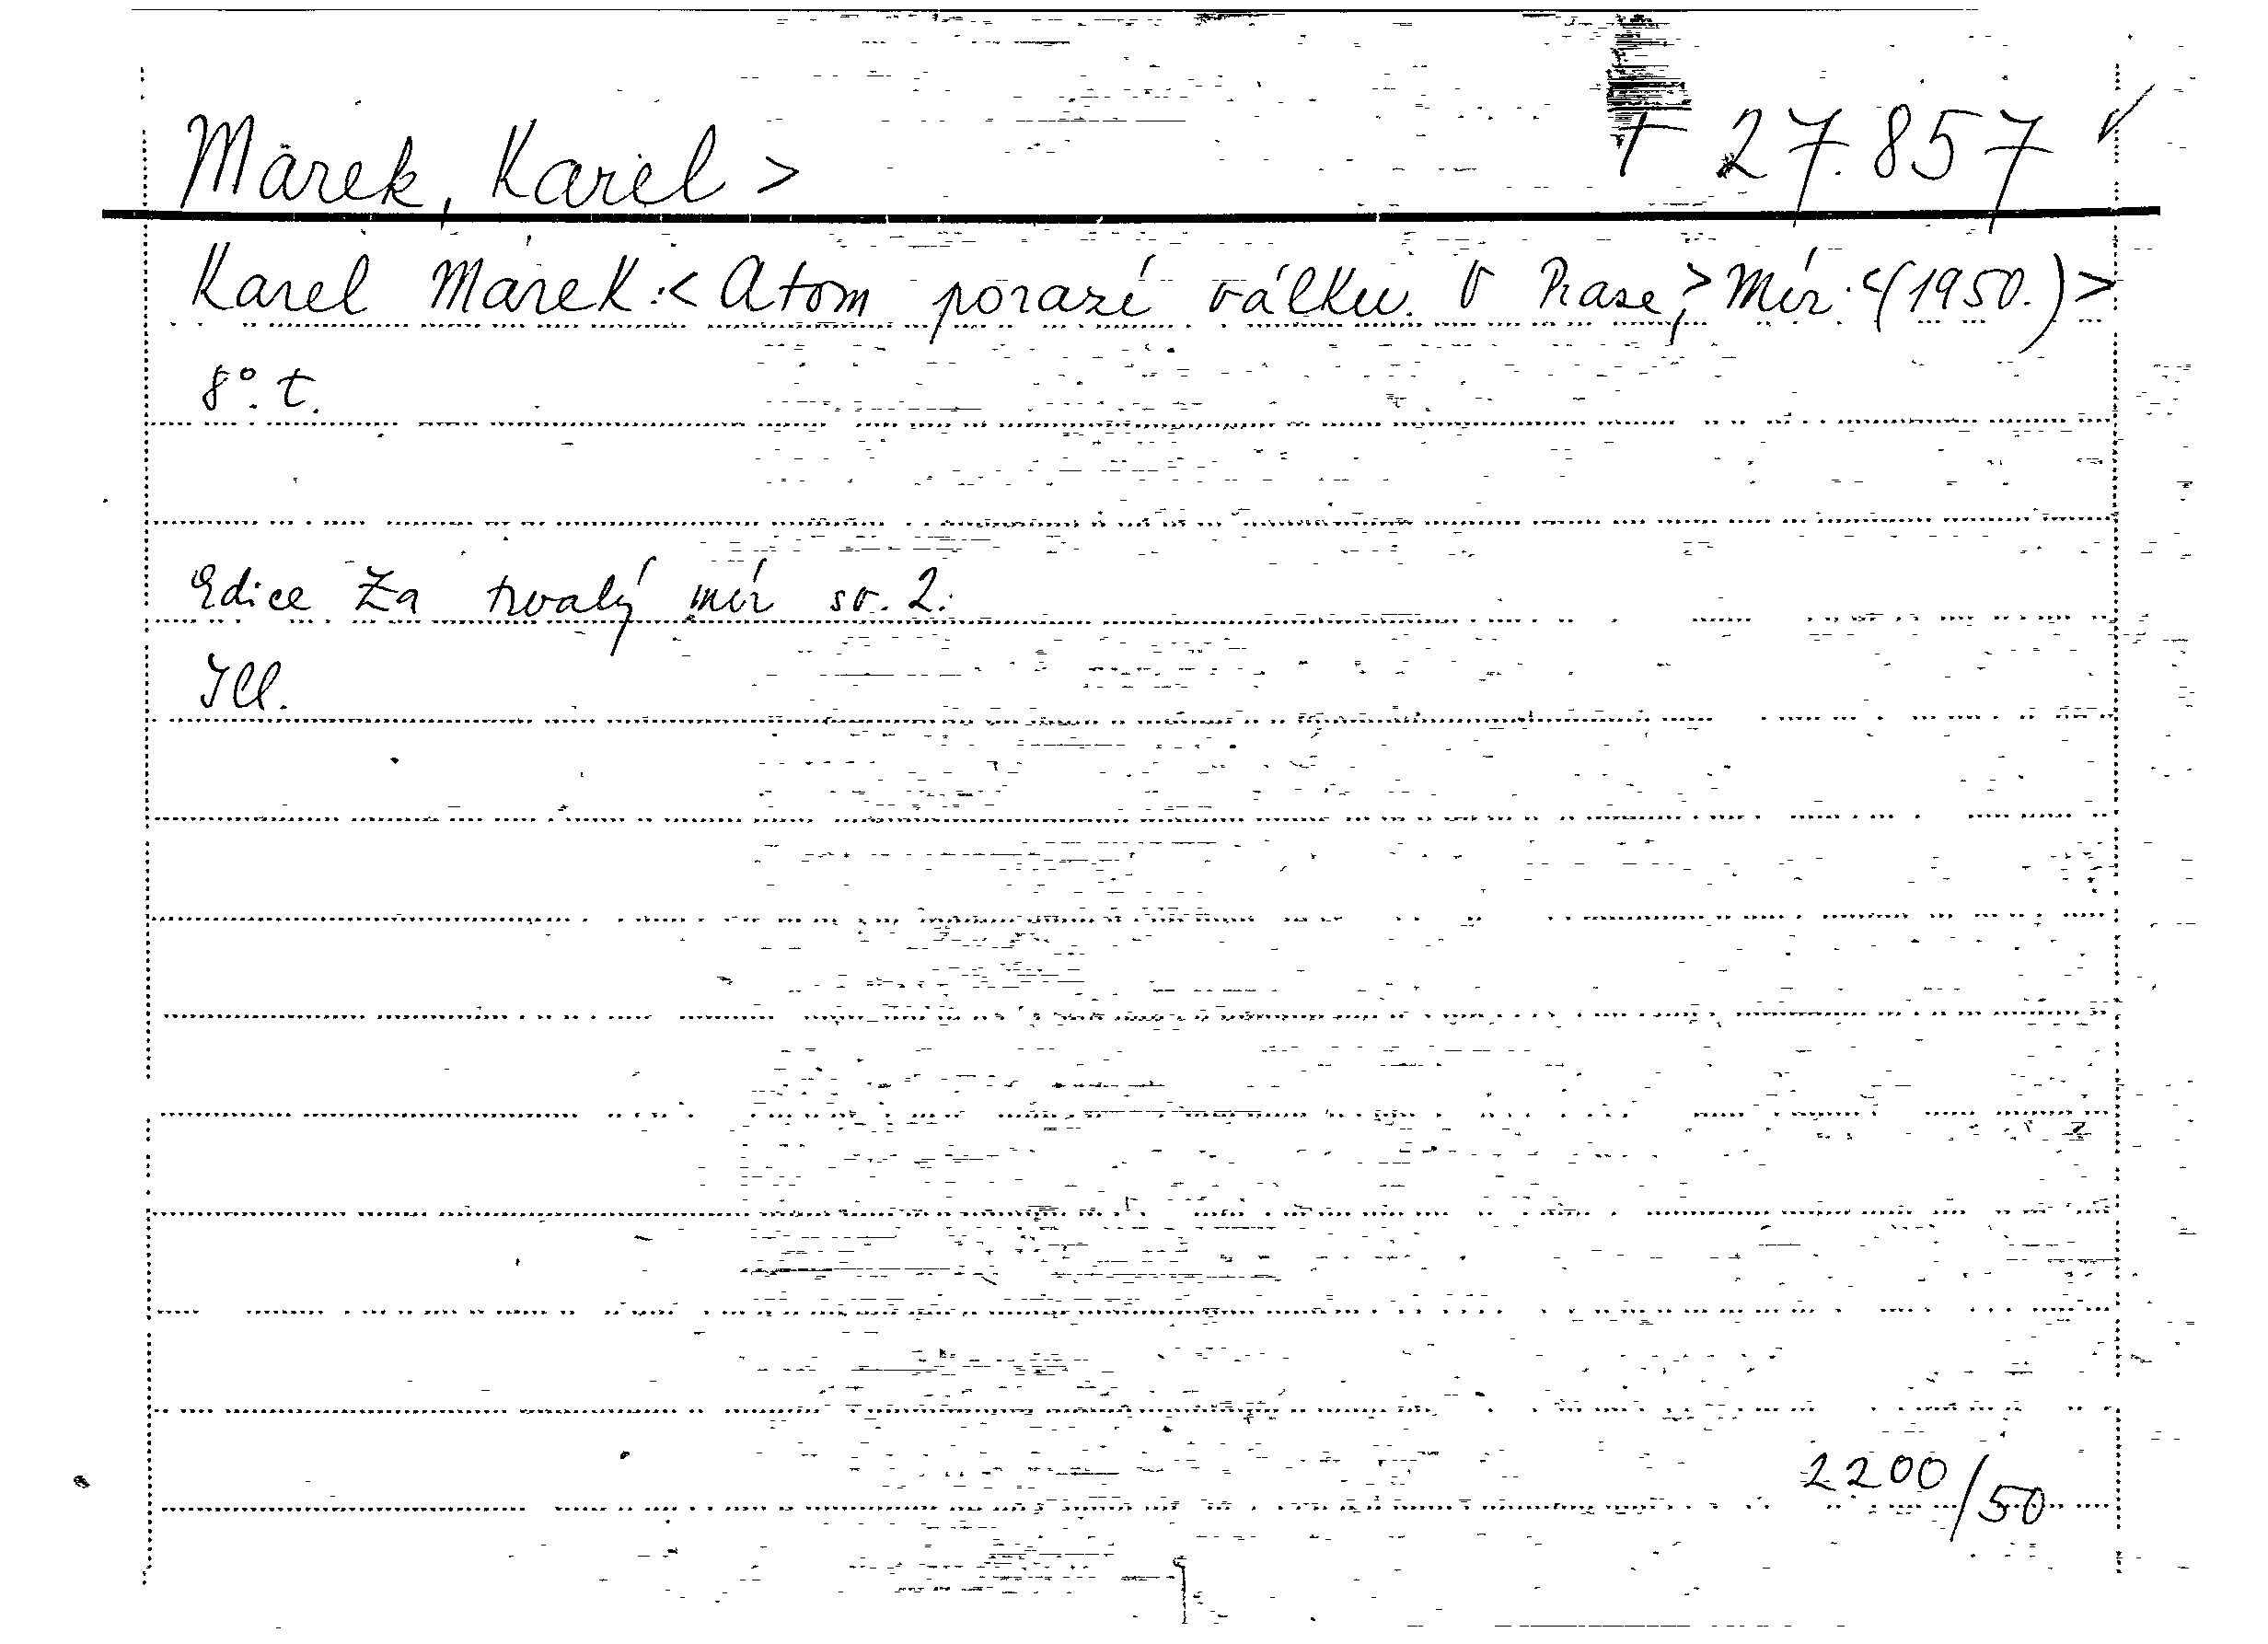 Marek, Karel > T 27.857 ✓
Karel Marek: < Atom porazí válku. V Praze, > Mír. < (1950.) >
8°. t.
Edice Za trvalý mír sv. 2.
Ill.
2200/50